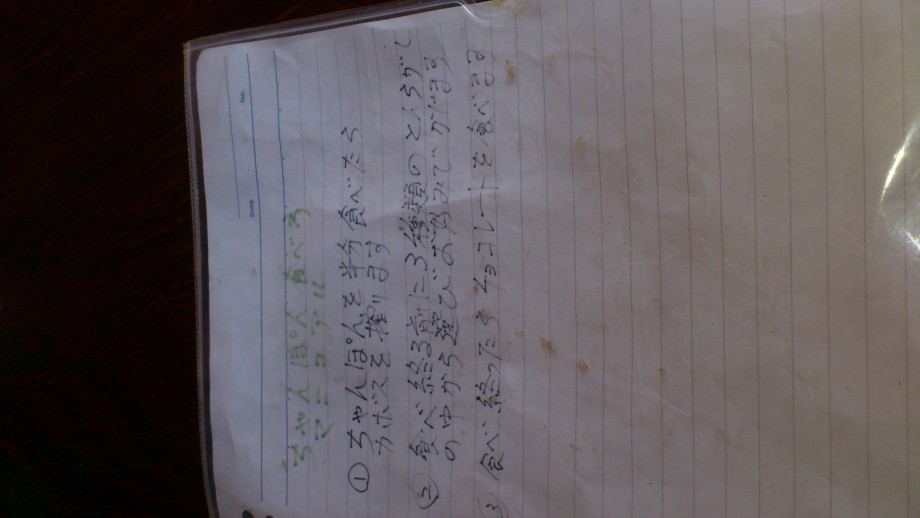 No.
Date
ちゃんぽん食べる
マニュアル
① ちゃんぽんを半分食べたら
カボスを搾ります
② 食べ終る前に3種類のとんがらし
の中から選びお好みでかけます
③ 食べ終ったらチョコレートを食べます